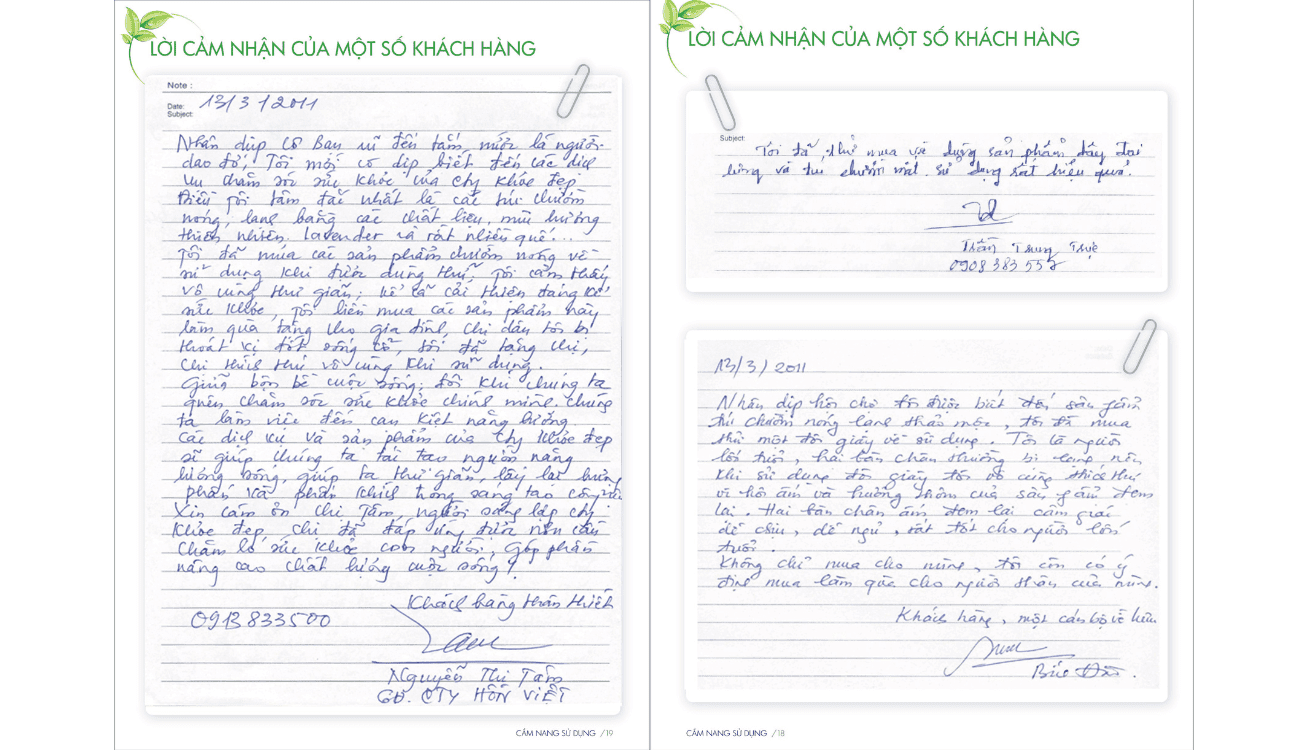 LỜI CẢM NHẬN CỦA MỘT SỐ KHÁCH HÀNG
Note :
Date: 13/3/2011
Subject:
Nhân dịp cô bạn rủ đến tắm, mước lá người
dao đỏ, Tôi mới có dịp biết đến các dịch
vụ chăm sóc sức khỏe của Cty Khỏe Đẹp
Điều tôi tâm đắc nhất là các túi chườm
nóng, lạnh bằng các chất liệu, mùi hương
thiên nhiên. lavender và rất nhiều quế...
Tôi đã mua các sản phẩm chườm nóng về
sử dụng khi được dùng thử, Tôi cảm thấy
vô cùng thư giãn, kể cả cải thiện đáng kể
sức khỏe, Tôi liền mua các sản phẩm này
làm quà tặng cho gia đình, chị dâu tôi bị
thoát vị đốt sống cổ, tôi đã tặng chị,
chị thích thú vô cùng khi sử dụng.
Giữa bộn bề cuộc sống, đôi khi chúng ta
quên chăm sóc sức khỏe chính mình. chúng
ta làm việc đến cạn kiệt năng lượng.
Các dịch vụ và sản phẩm của Cty Khỏe đẹp
sẽ giúp chúng ta tái tạo nguồn năng
lượng sống, giúp ta thư giãn, lấy lại hưng
phấn và phấn khích trong sáng tạo công việc
Xin cám ơn chị Tâm, người sáng lập cty
Khỏe đẹp, chị đã đáp ứng được nhu cầu
chăm lo sức khỏe con người, góp phần
nâng cao chất lượng cuộc sống!
Khách hàng thân thiết
0913833500
Nguyễn Thị Tám
GĐ. CTY HỒN VIỆT
CẨM NANG SỬ DỤNG /19
LỜI CẢM NHẬN CỦA MỘT SỐ KHÁCH HÀNG
Subject:
Tôi đã thử mua về dùng sản phẩm đây đai
lưng và túi chườm mắt. sử dụng rất hiệu quả.
Trần Trung Trực
0908 383 552
13/3/2011
Nhân dịp hội chợ tôi được biết đến sản phẩm
túi chườm nóng lạnh thảo mộc, tôi đã mua
thử một đôi giày về sử dụng. Tôi là người
lớn tuổi, hai bàn chân thường bị lạnh nên
khi sử dụng đôi giày tôi vô cùng thích thú
vì hơi ấm và hương thơm của sản phẩm đem
lại. Hai bàn chân ấm đem lại cảm giác
dễ chịu, dễ ngủ, rất tốt cho người lớn
tuổi.
Không chỉ mua cho mình, tôi còn có ý
định mua làm quà cho người thân của mình.
Khách hàng, một cán bộ về hưu
CẨM NANG SỬ DỤNG /18